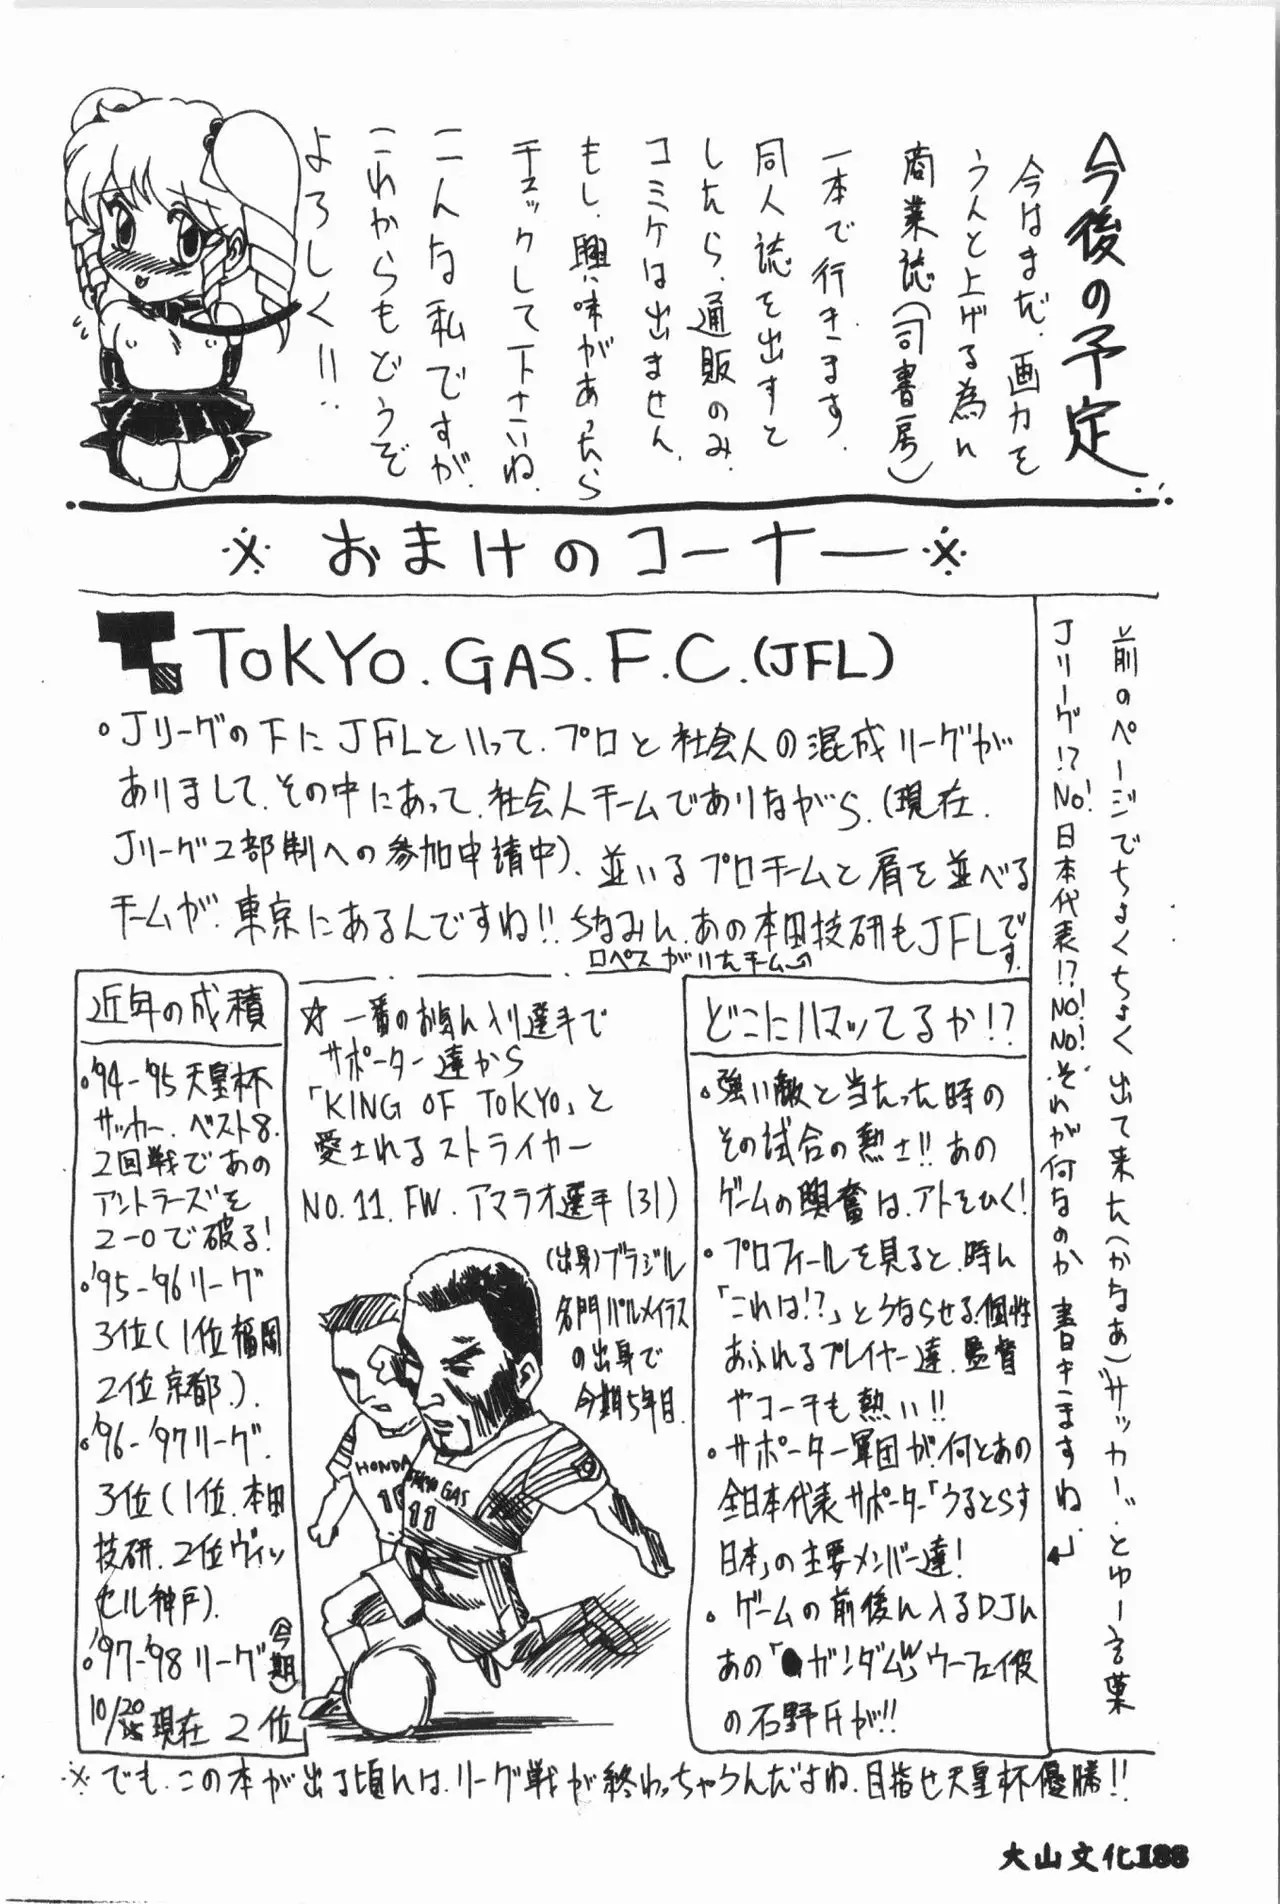 今後の予定
今はまだ、画力を
うんと上げる為に
商業誌(司書房)
一本で行きます。
同人誌を出すと
したら、通販のみ。
コミケは出ません。
もし、興味があったら
チェックして下さいね。
こんな私ですが、
これからもどうぞ
よろしく!!
※おまけのコーナー※
前のページでちょくちょく出て来た(かなあ)“サッカー”。とゆー言葉
Jリーグ!?No!日本代表!?NO!NO!それが何なのか書きますね。
TOKYO.GAS.F.C.(JFL)
Jリーグの下にJFLといって、プロと社会人の混成リーグが
ありまして、その中にあって、社会人チームでありながら、(現在、
Jリーグ2部制への参加申請中)、並いるプロチームと肩を並べる
チームが、東京にあるんですね!!ちなみに、あの本田技研もJFLです。
ロペスがいたチーム
近年の成積
'94-'95天皇杯
サッカー、ベスト8。
2回戦であの
アントラーズを
2-0で破る!
'95-'96リーグ
3位(1位福岡
2位京都)。
'96-'97リーグ。
3位(1位、本田
技研、2位ヴィッ
セル神戸)。
'97-'98リーグ(今期)
10/20現在 2位
☆一番のお気に入り選手で
サポーター達から
「KING OF TOKYO」と
愛されるストライカー
NO.11.FW.アマラオ選手(31)
(出身)ブラジル
名門パルメイラス
の出身で
今期5年目。
HONDA
10
TOKYO GAS
11
どこにハマッてるか!?
強い敵と当たった時の
その試合の熱さ!!あの
ゲームの興奮は、アトをひく!
プロフィールを見ると、時に
「これは!?」とうならせる、個性
あふれるプレイヤー達、監督
やコーチも熱い!!
サポーター軍団が、何とあの
全日本代表サポーター「うるとらす
日本」の主要メンバー達!
ゲームの前後に入るDJに
あの「●ガンダムW」ウーフェイ役
の石野氏が!!
※でも、この本が出る頃には、リーグ戦が終わっちゃうんだよね、目指せ天皇杯優勝!!
大山文化Ⅰ88